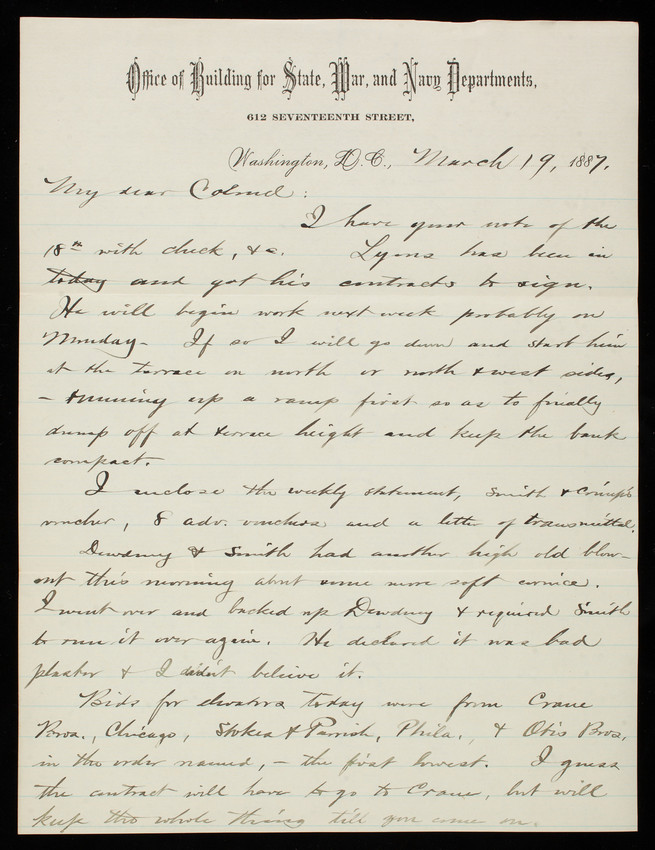 Office of Building for State, War, and Navy Departments,
612 SEVENTEENTH STREET,
Washington, D.C., March 19, 1887.
My dear Colonel:
I have your note of the
18th with check, &c. Lyons has been in
today and got his contracts to sign.
He will begin work next week probably on
Monday- If so I will go down and start him
at the terrace on north or north & west sides,
- running up a ramp first so as to finally
dump off at terrace height and keep the bank
compact.
I inclose the weekly statement, Smith & Crimp's
voucher, 8 adv. vouchers and a letter of transmittal.
Dewdney & Smith had another high old blow-
out this morning about some more soft cornice.
I went over and backed up Dewdney & required Smith
to run it over again. He declared it was bad
plaster & I didn't believe it.
Bids for elevators today were from Crane
Bros., Chicago, Stokes & Parrish, Phila., & Otis Bros.
in the order named, - the first lowest. I guess
the contract will have to go to Crane, but will
keep the whole thing till you come on.